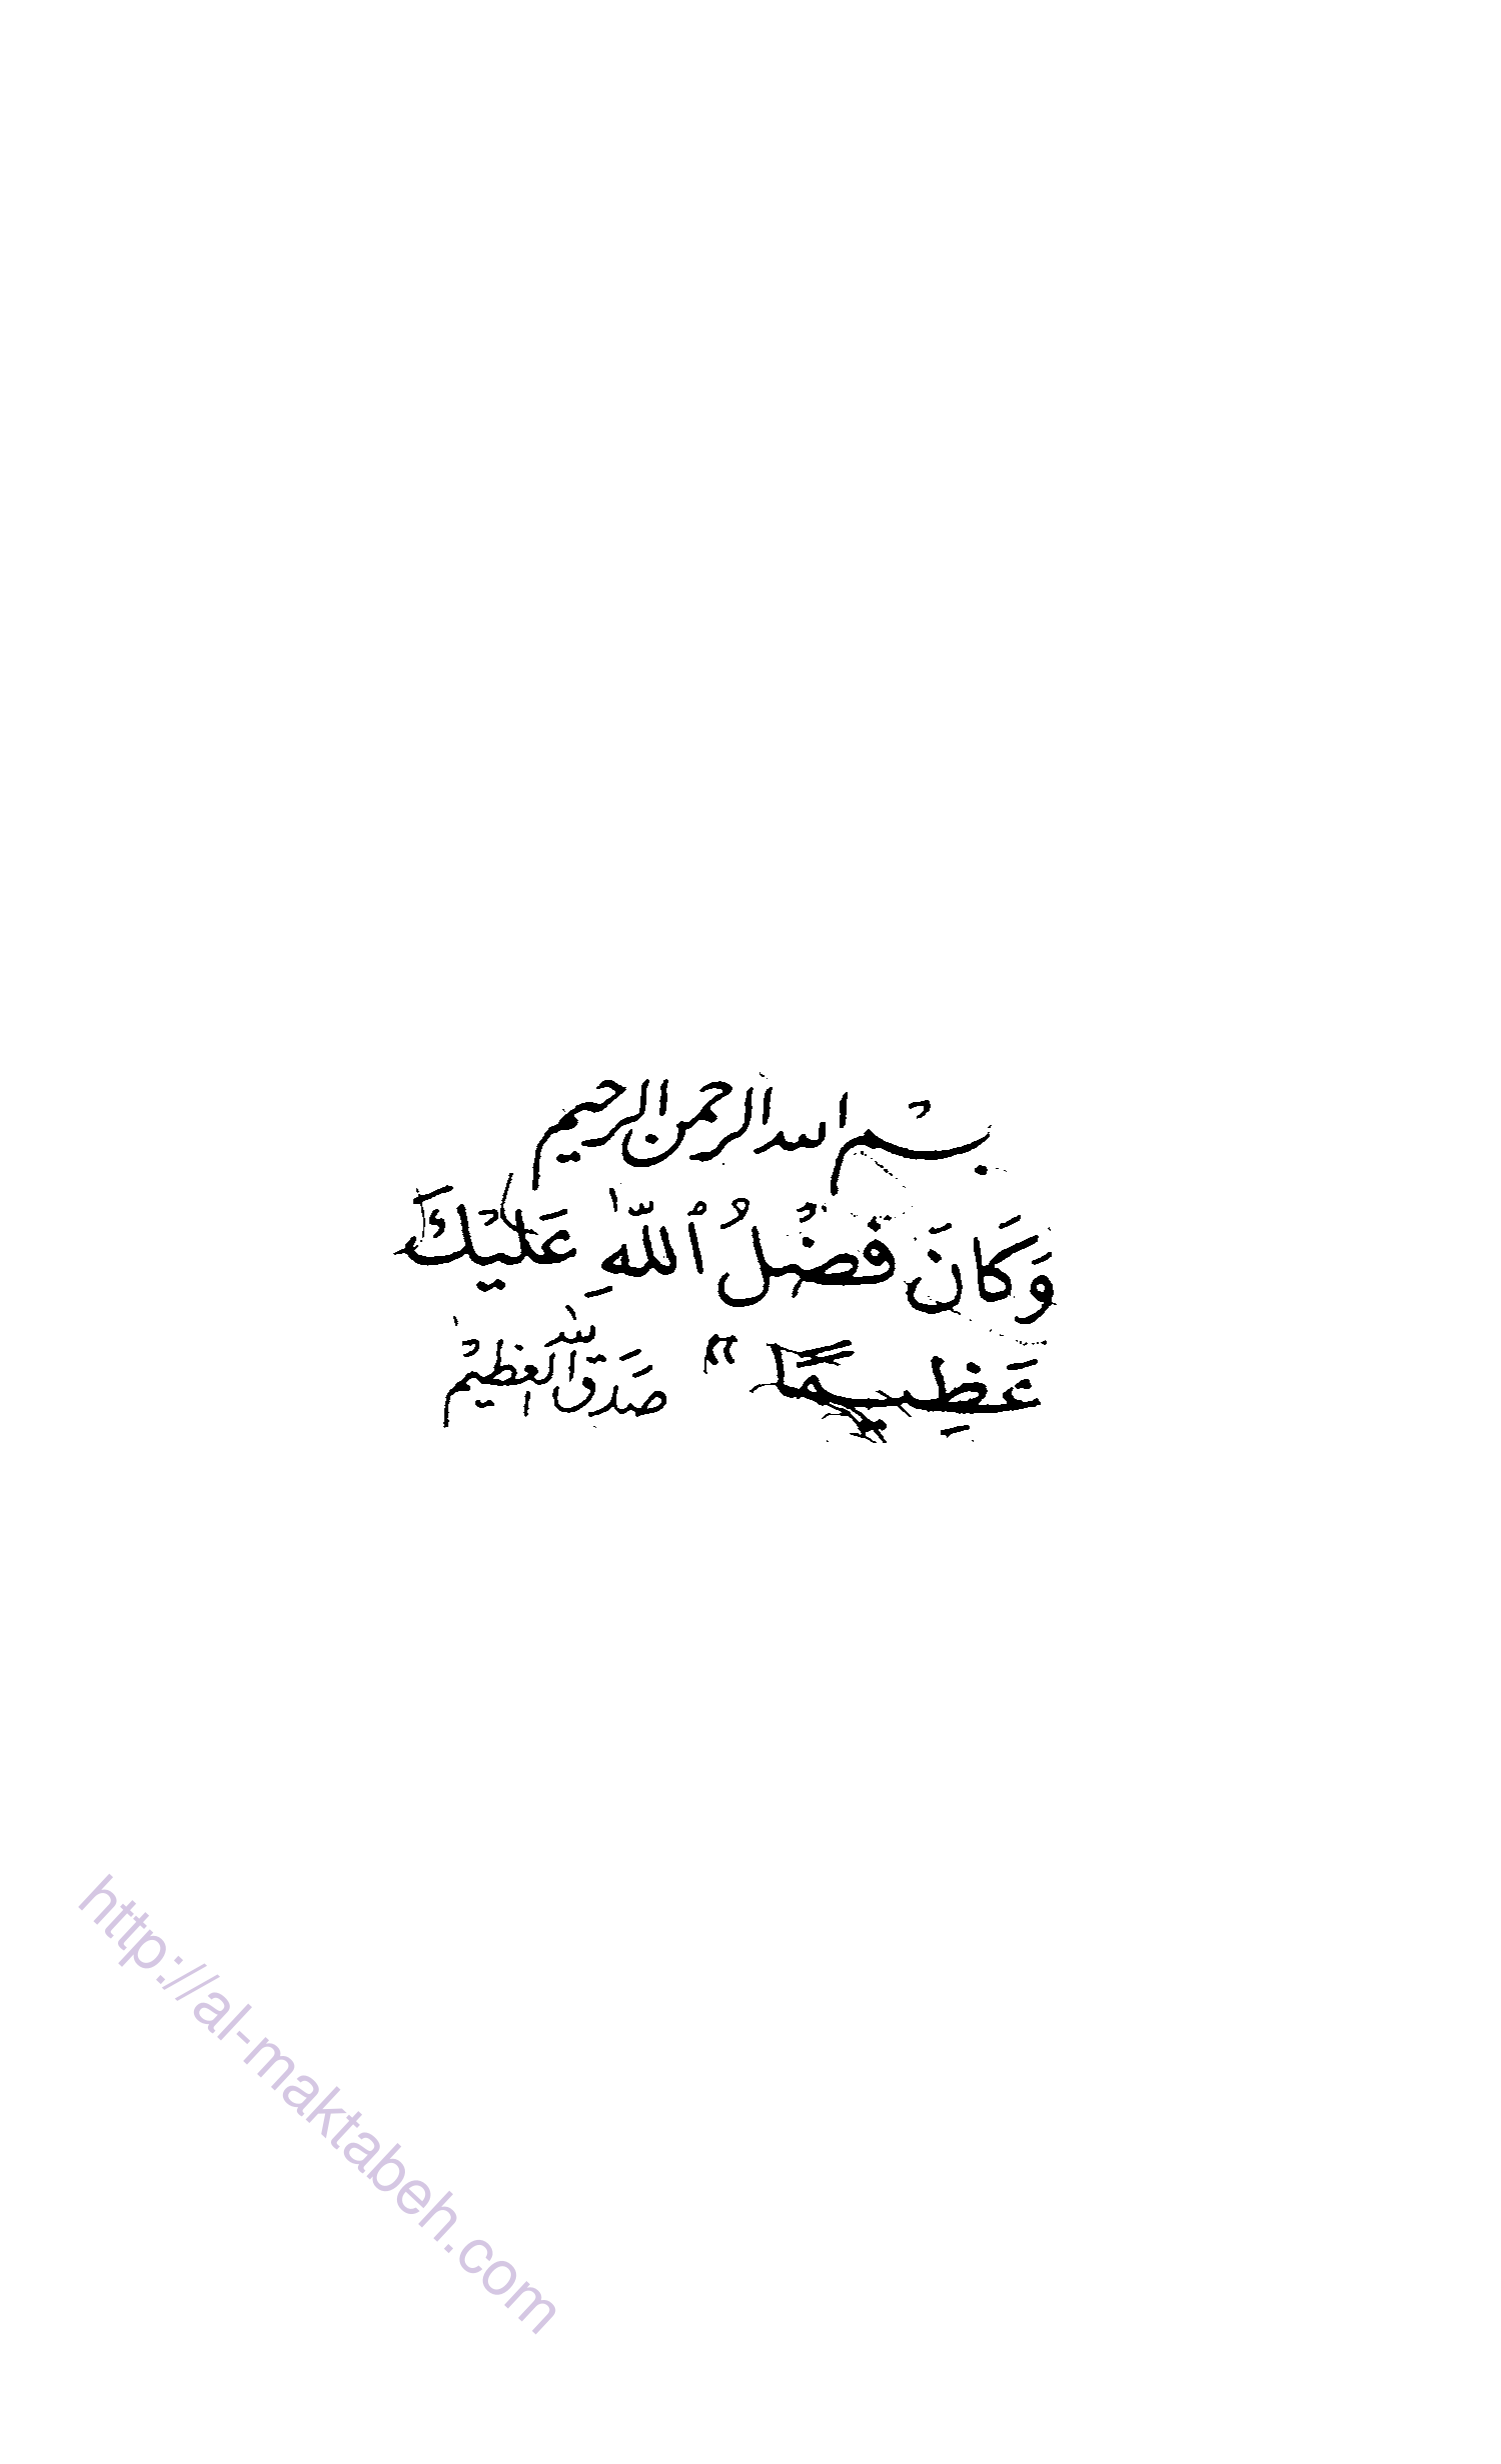 بسم الله الرحمن الرحيم
وَكَانَ فَضْلُ ٱللَّهِ عَلَيْكَ
عَظِيمًا » صَدَقَ اللَّهُ الْعَظِيمُ
http://al-maktabeh.com